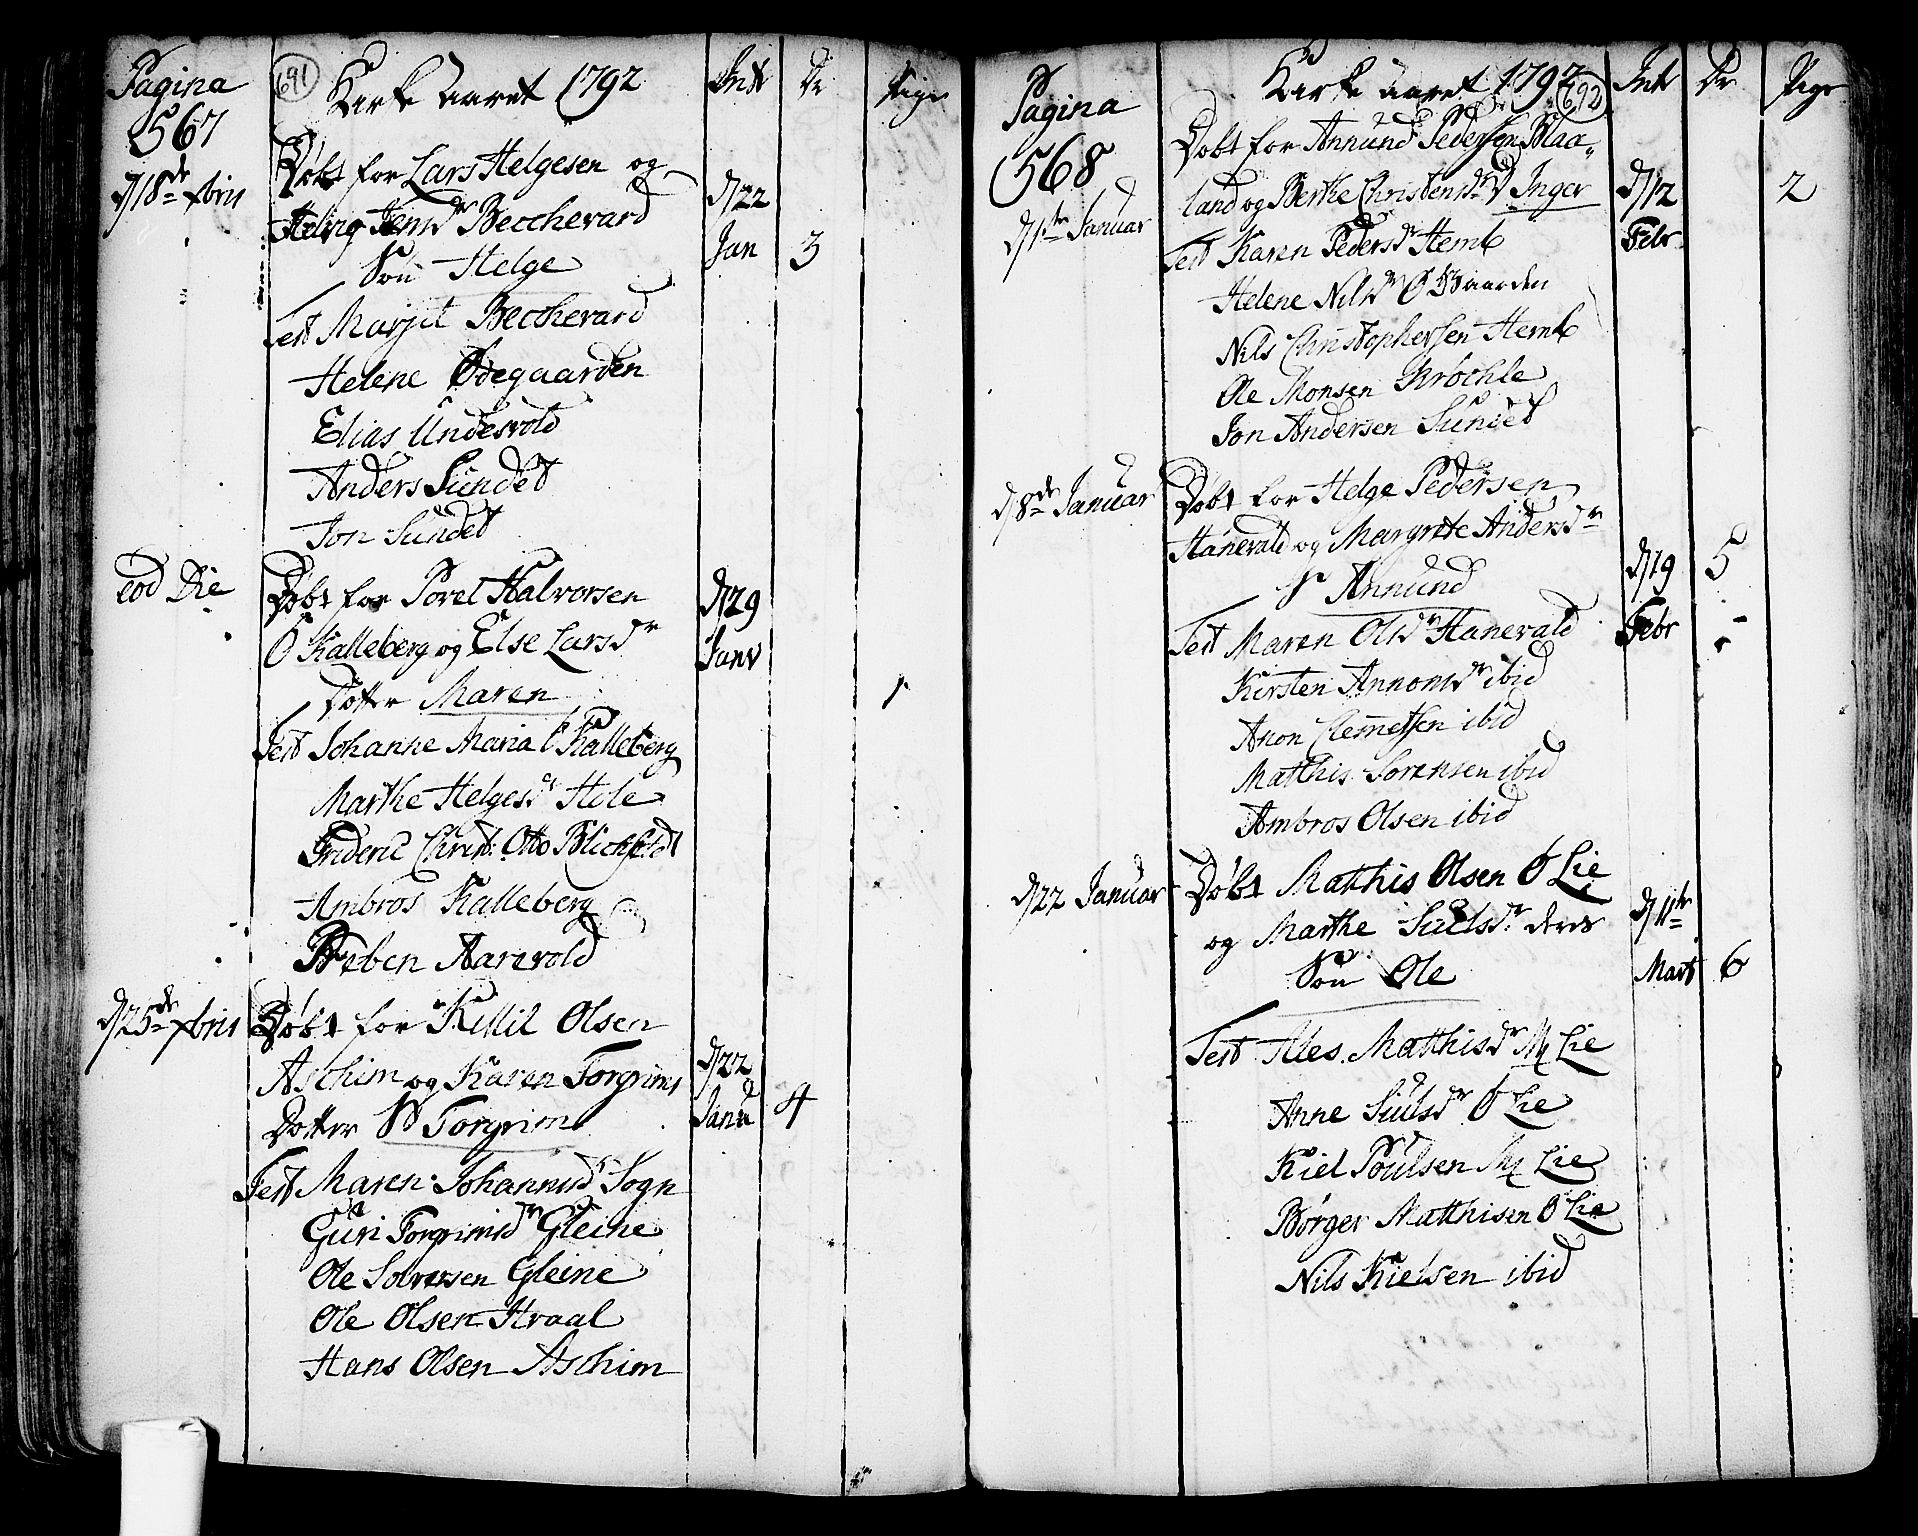 Pagina
567
691
Kirke Aaret 1792
Int
Dr
Pige
d 18de Xbris
Døbt for Lars Helgesen og
Helvig Jensdr Beccherard
Søn Helge
d 22
Jan
3
Test Marjit Beccherard
Helene Ødegaarden
Elias Undesvold
Anders Sundet
Jon Sundet
eod Die
Døbt for Povel Halvorsen
Ø Kalleberg og Else Larsdr
Dotter Maren
d 29
Janv
1
Test Johanne Maria Kalleberg
Marthe Helgesdr Hole
Frideric Christ: Otto Blichfeldt
Ambros Kalleberg
Preben Aarevold
d 25de Xbris
Døbt for Killil Olsen
Aschim og Karen Torgrims
Dotter S Torgrim
d 22
Janu
4
Test Maren Johannesdr Sogn
Guri Torgrimsdr Gleine
Ole Solvesen Gleine
Ole Olsen Straal
Hans Olsen Aschim
Pagina
568
Kirke Aaret 1792
692
Int
Dr
Pige
d 1te Januar
Døbt for Annund Pedersen Blaa„
land og Berthe Christensdr D Inger
d 12
Febr
2
Test Karen Pedersdr Hemb
Helene Nilsdr Ø Gaarden
Nils Christophersen Hemb
Ole Monsen Krøchle
Jon Andersen Sundet
d 8de Januar
Døbt for Helge Pedersen
Hanevald og Margrete Andersdr
S Annund
d 19
Febr
5
Test Maren Olsdr Hanevald
Kirsten Annonsdr ibid
Anon Clemetsen ibid
Matthis Sørensen ibid
Ambros Olsen ibid
d 22 Januar
Døbt Matthis Olsen Ø Lie
og Marthe Siulsdr deres
Søn Ole
d 11te
Mart
6
Test Ales Matthisdr M Lie
Anne Siulsdr Ø Lie
Kiel Poulsen M Lie
Børger Matthisen Ø Lie
Nils Kielsen ibid